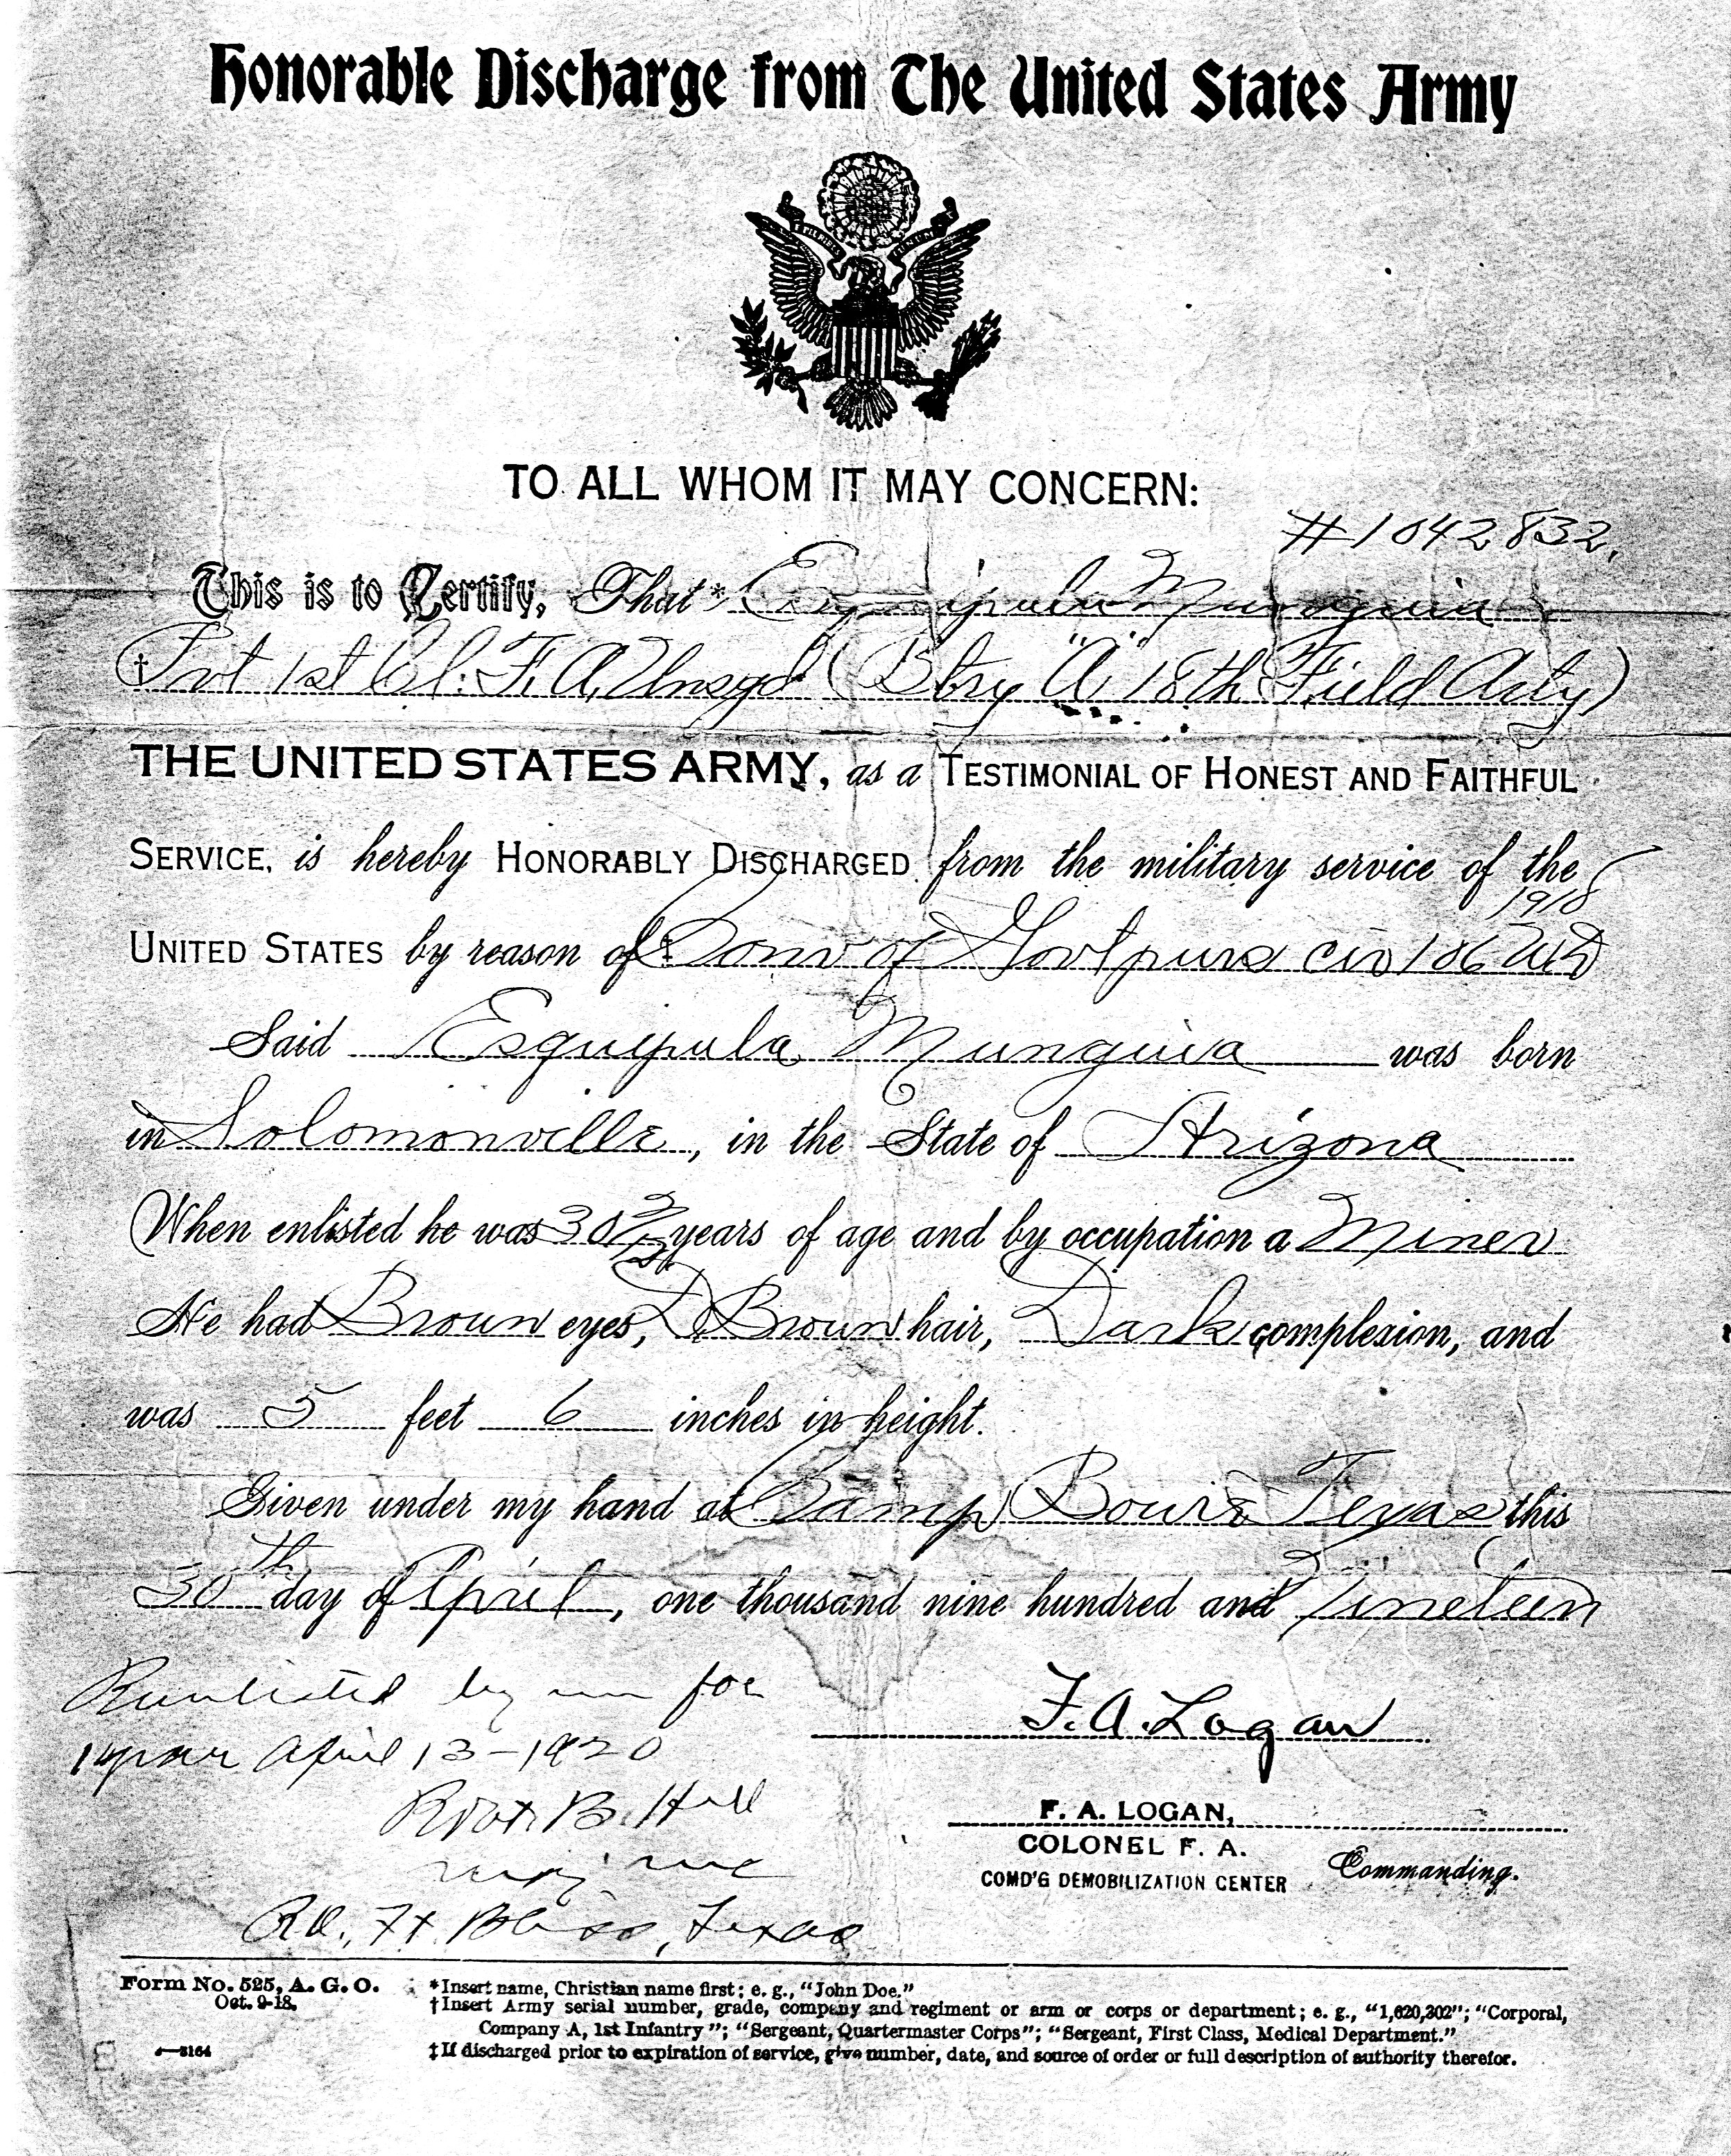 Honorable Discharge from The United States Army
TO ALL WHOM IT MAY CONCERN:
#1042832.
This is to Certify, That* Esquipula Munguia
†Pvt 1st Cl. F. A. Unsgd (Btry "A" 18th Field Arty)
THE UNITED STATES ARMY, as a TESTIMONIAL OF HONEST AND FAITHFUL
SERVICE, is hereby HONORABLY DISCHARGED from the military service of the
1918
UNITED STATES by reason of‡ Conv of Govt purs cir 106 WD
Said Esquipula Munguia was born
in Solomonville, in the State of Arizona
When enlisted he was 30 2/12 years of age and by occupation a Miner
He had Brown eyes, D. Brown hair, Dark complexion, and
was 5 feet 6 inches in height.
Given under my hand at Camp Bowie Texas this
30th day of April, one thousand nine hundred and Nineteen
Reenlisted by me for
1 year April 13-1920
F. A. Logan
Robt B. Hill
F. A. LOGAN,
COLONEL F. A.
COMD'G DEMOBILIZATION CENTER Commanding.
Maj
R.O., Ft. Bliss, Texas
Form No. 525, A. G. O.
Oct. 9-18.
*Insert name, Christian name first; e. g., "John Doe."
†Insert Army serial number, grade, company and regiment or arm or corps or department; e. g., "1,620,302"; "Corporal,
Company A, 1st Infantry"; "Sergeant, Quartermaster Corps"; "Sergeant, First Class, Medical Department."
3—3164
‡If discharged prior to expiration of service, give number, date, and source of order or full description of authority therefor.